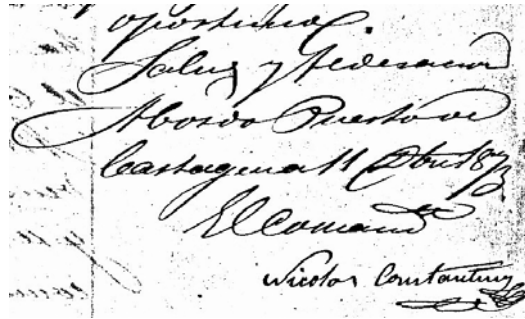 oportuna.
Salud y Federacion
Abordo Puerto de
Cartagena 11 Obre 1873
El Comand
Nicolas Constantiny